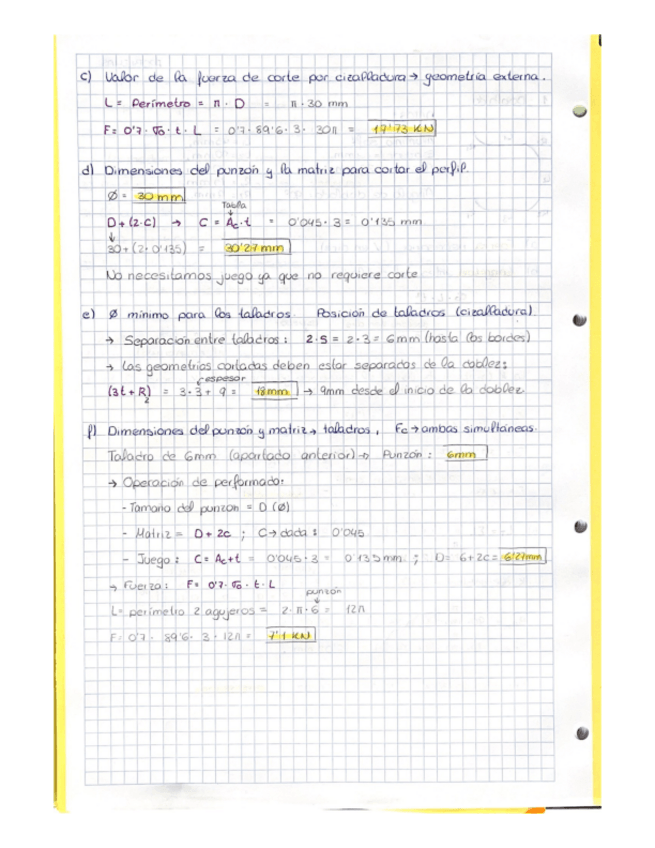 c) Valor de la fuerza de corte por cizalladura → geometría externa.
L = Perímetro = π · D = π · 30 mm
F = 0'7 · σ0 · t · L = 0'7 · 89'6 · 3 · 30π = 17'73 KN
d) Dimensiones del punzón y la matriz para cortar el perfil.
Ø = 30 mm
Tabla
D + (2·C) → C = Ac · t = 0'045 · 3 = 0'135 mm
30 + (2 · 0'135) = 30'27 mm
No necesitamos juego ya que no requiere corte
e) Ø mínimo para los taladros. Posición de taladros (cizalladura)
→ Separación entre taladros: 2·S = 2·3 = 6mm (hasta los bordes)
→ Las geometrías cortadas deben estar separadas de la doblez:
espesor
(3t + R) = 3·3 + 9 = 18mm → 9mm desde el inicio de la doblez
2
f) Dimensiones del punzón y matriz → taladros, Fc → ambas simultáneas.
Taladro de 6mm (apartado anterior) → Punzón: 6mm
→ Operación de performado:
- Tamaño del punzon = D (Ø)
- Matriz = D + 2c ; C → dada : 0'045
- Juego : C = Ac + t = 0'045 · 3 = 0'135 mm ; D = 6 + 2c = 6'27mm
→ Fuerza : F = 0'7 · σ0 · t · L
punzón
L = perímetro 2 agujeros = 2 · π · 6 = 12π
F = 0'7 · 89'6 · 3 · 12π = 7'1 KN